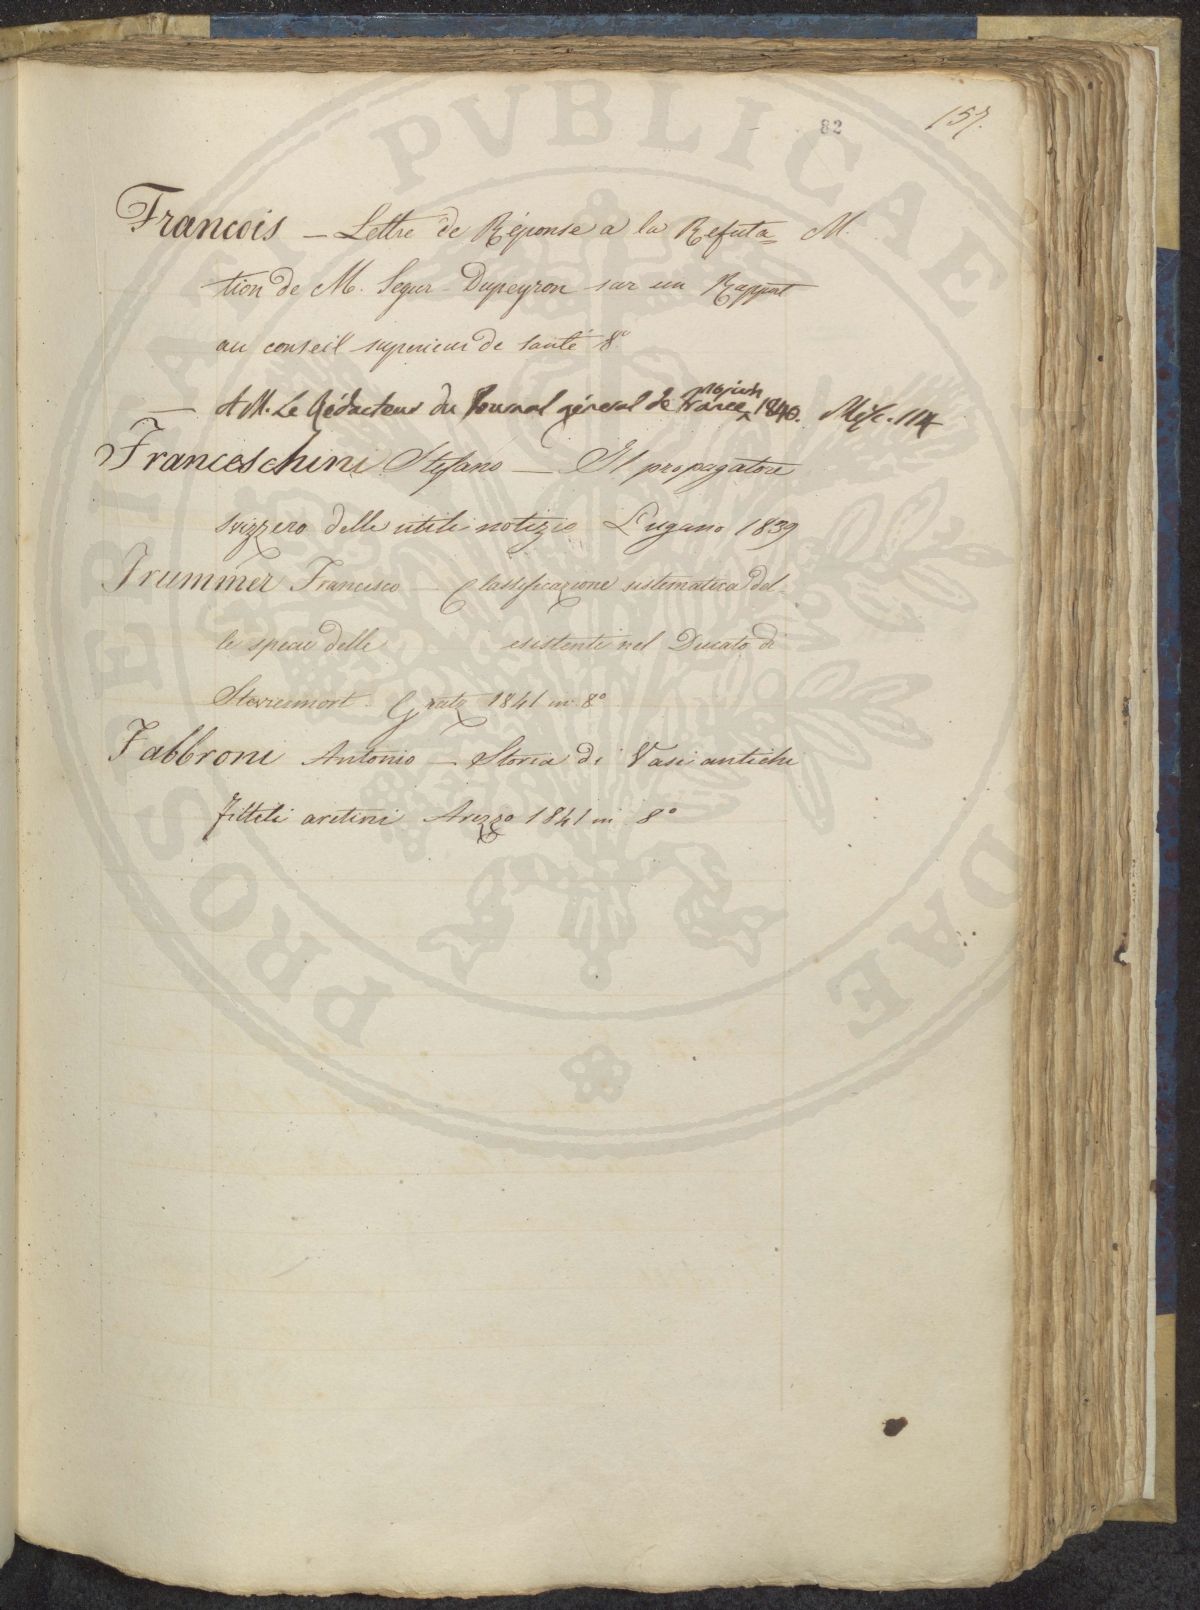 82
157.
Francois – Lettre de Réponse a la Refuta= M.
tion de M. Segur-Dupeyron sur un Rapport
au conseil superieur de santé 8.º
— A M. Le Rédacteur du Journal général de France, 1840. Misc. 114
Franceschini Stefano – Il propagatore
svizzero delle utili notizie Lugano 1839
Trummer Francesco – Classificazione sistematica del-
le specie delle esistenti nel Ducato di
Gratz 1841 in 8º
Fabbroni Antonio – Storia di Vasi antichi
fittili aretini Arezzo 1841 in 8º
PROSPERITATI PVBLICAE DAE